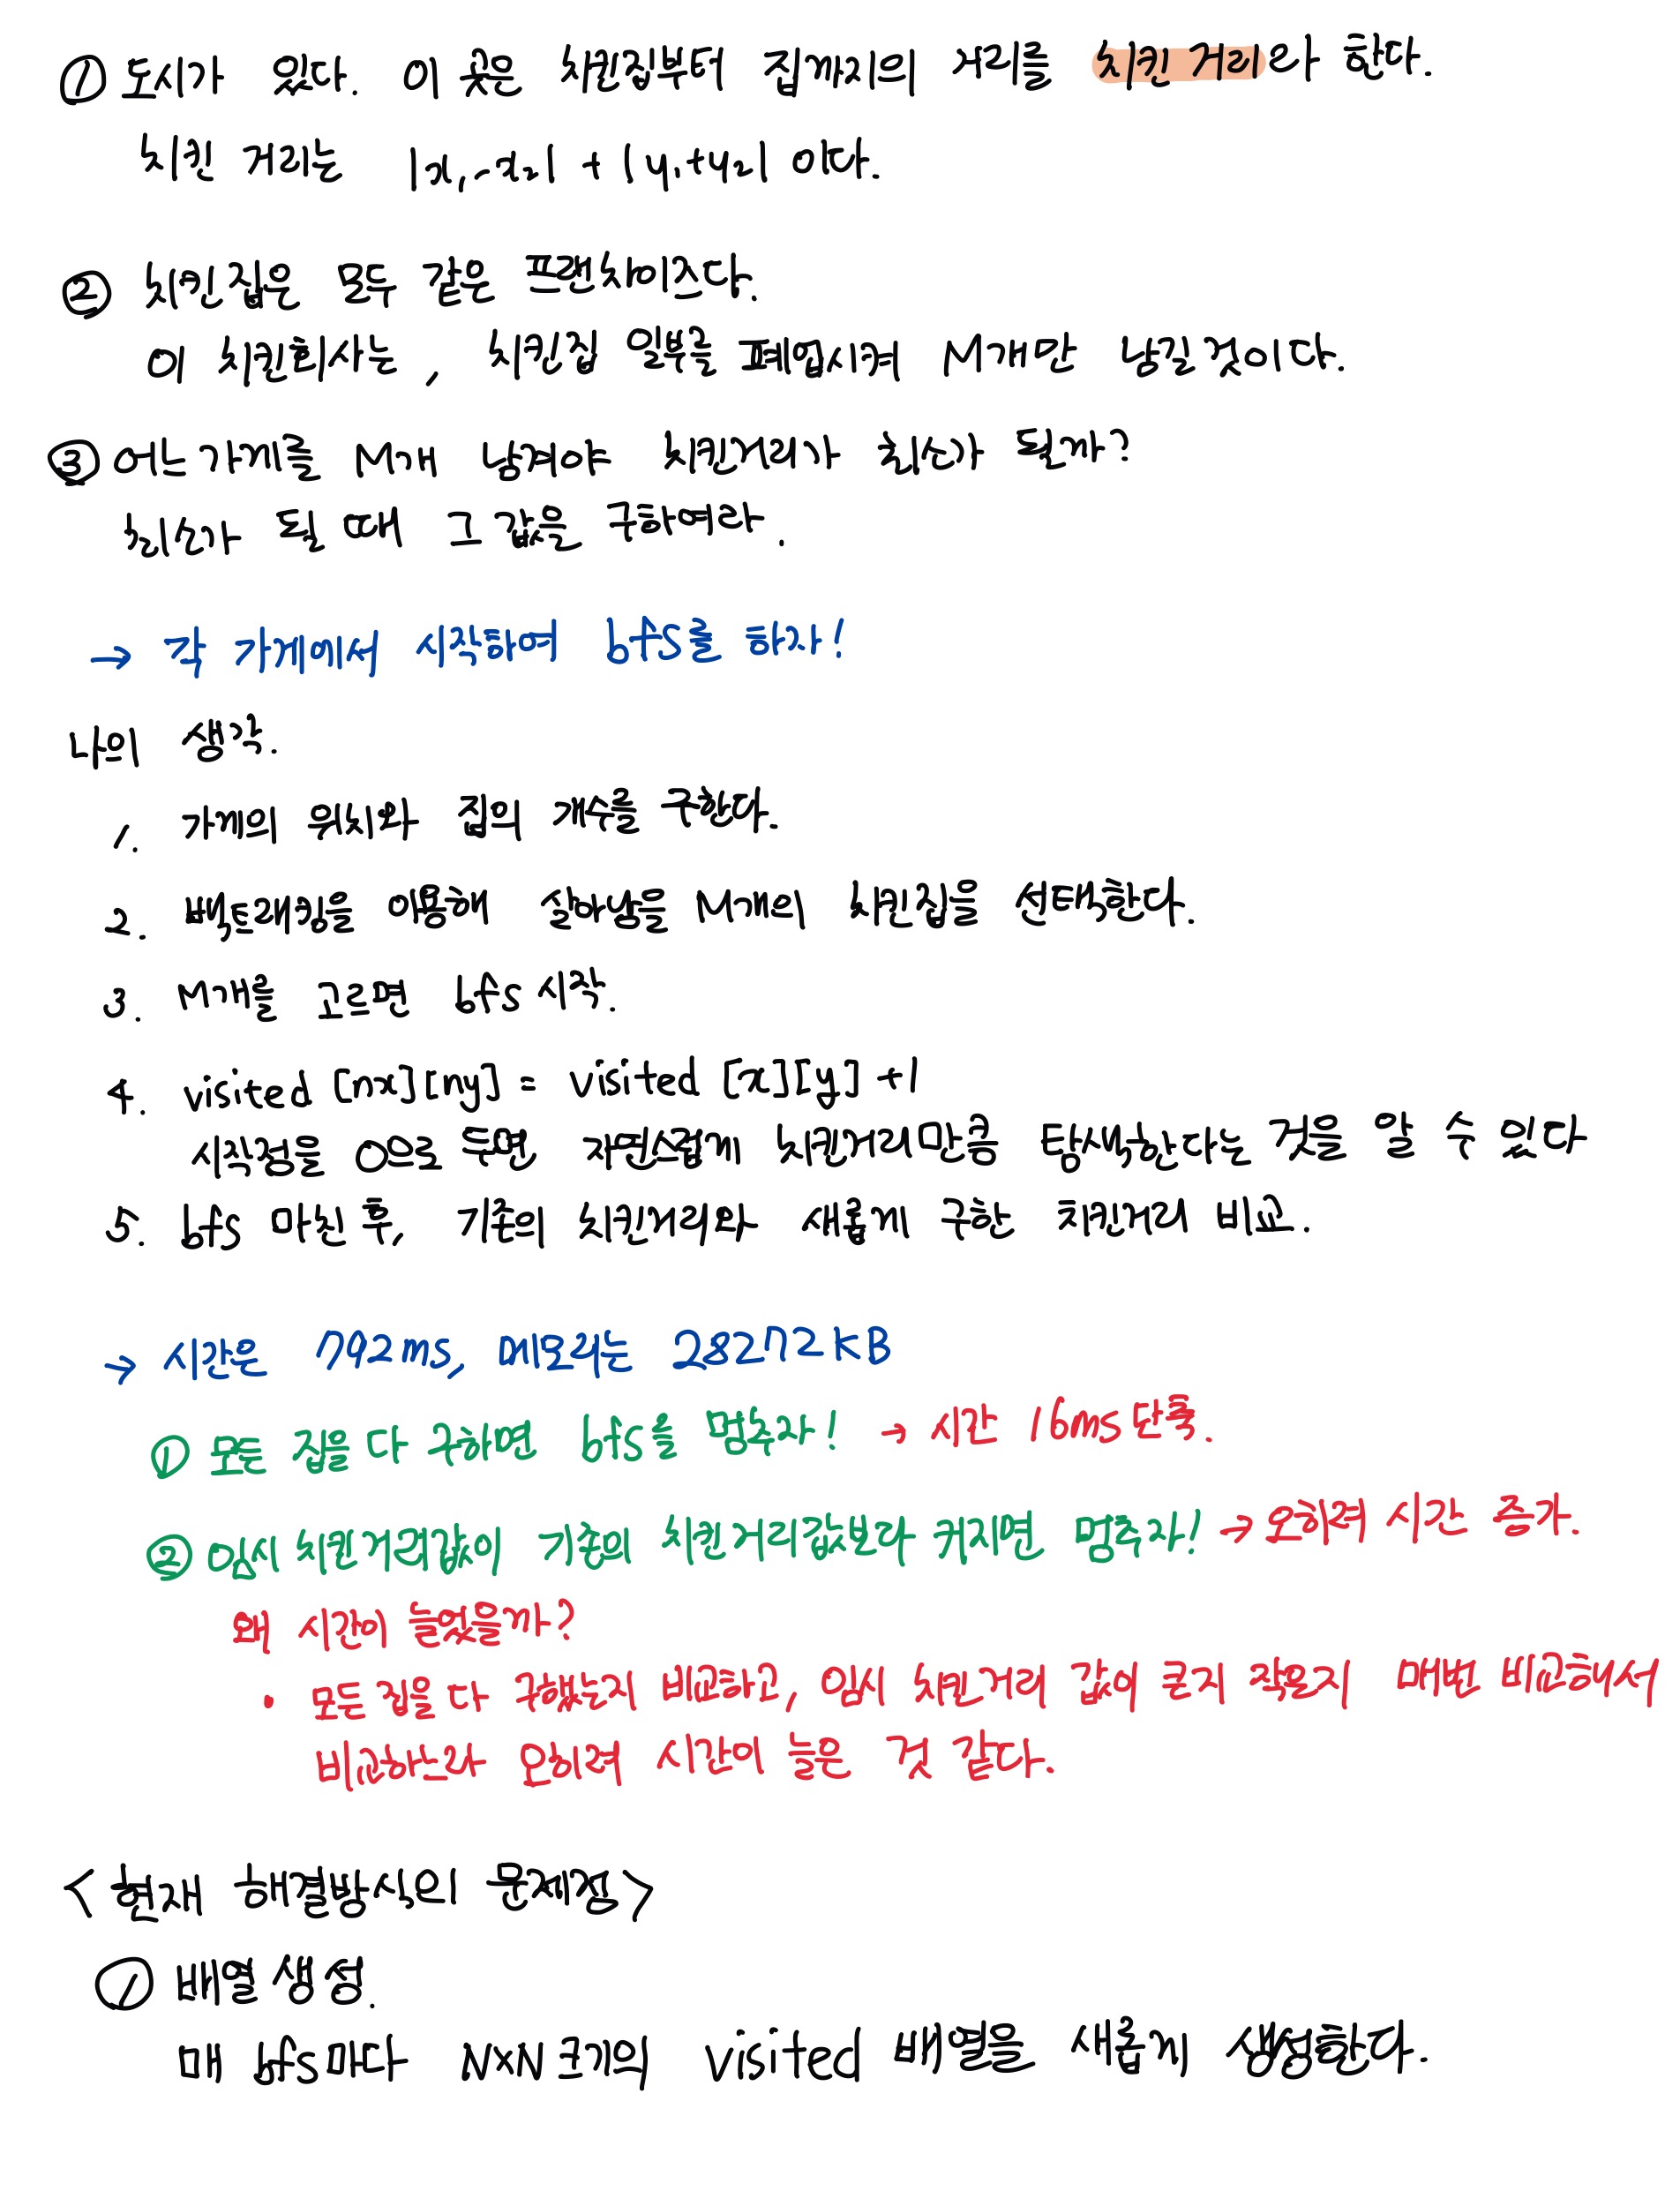 ① 도시가 있다. 이 곳은 치킨집부터 집까지의 거리를 치킨 거리라 한다.
치킨 거리는 |x₁-x₂| + |y₁+y₂| 이다.
② 치킨집은 모두 같은 프랜차이즈다.
이 치킨회사는, 치킨집 일부를 폐업시켜 M개만 남길것이다.
③ 어느가게를 M개 남겨야 치킨거리가 최소가 될까?
최소가 될 때 그 값을 구하여라.
→ 각 가게에서 시작하여 bfs를 하자!
나의 생각.
1. 가게의 위치와 집의 개수를 구한다.
2. 백트래킹을 이용해 살아남을 M개의 치킨집을 선택한다.
3. M개를 고르면 bfs 시작.
4. visited [nx][ny] = visited [x][y] +1
시작점을 0으로 두면 자연스럽게 치킨거리만큼 탐색한다는 것을 알 수 있다
5. bfs 마친 후, 기존의 치킨거리와 새롭게 구한 치킨거리 비교.
→ 시간은 792ms, 메모리는 28272KB
① 모든 집을 다 구하면 bfs를 멈추자! → 시간 16ms 단축.
② 임시 치킨거리값이 기존의 치킨거리값보다 커지면 멈추자! → 오히려 시간 증가.
왜 시간이 늘었을까?
• 모든 집을 다 구했는지 비교하고, 임시 치킨거리 값이 큰지 작은지 매번 비교해서
비교하느라 오히려 시간이 늘은 것 같다.
<현재 해결방식의 문제점>
① 배열 생성.
매 bfs마다 NxN 크기의 visited 배열을 새롭게 생성한다.